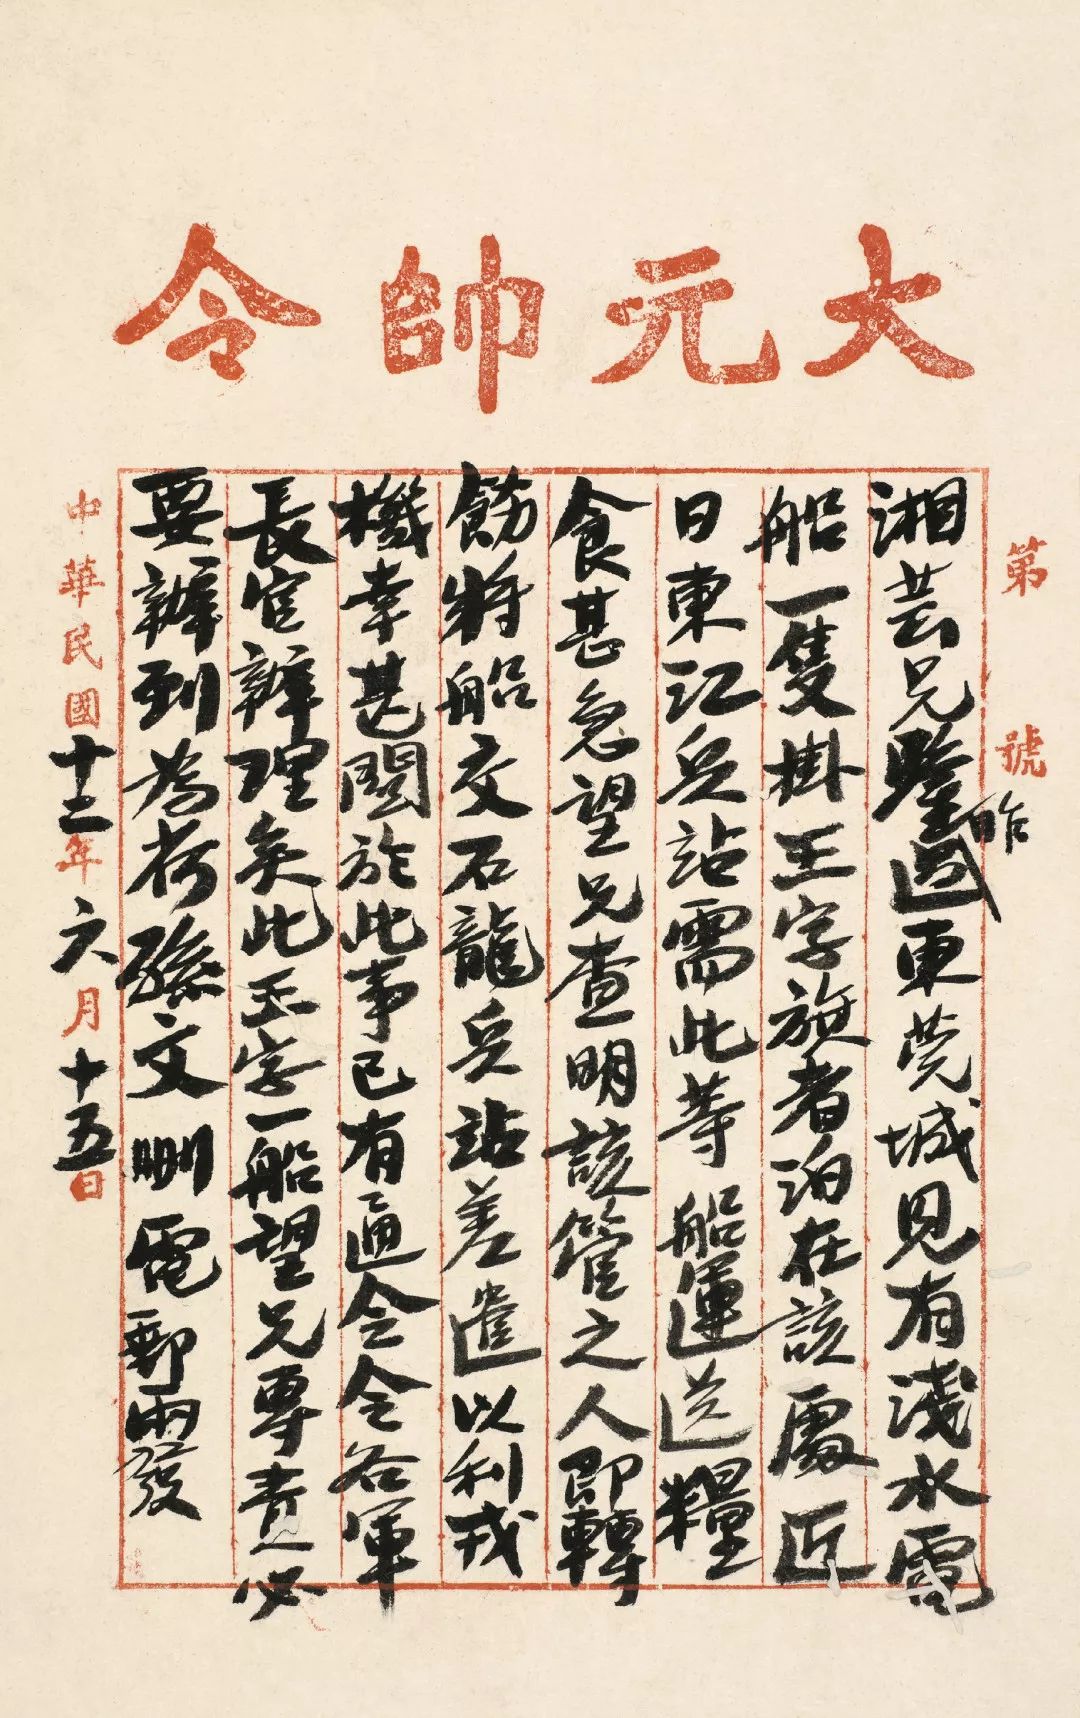 大元帥令
第 號
湘芸兄鑒昨過東莞城見有淺水電
船一隻掛王字旗者泊在該處近
日東江兵站需此等船運送糧
食甚急望兄查明該管之人即轉
飭將船交石龍兵站差遣以利戎
機幸甚關於此事已有通令令各軍
長官辦理矣此王字一船望兄專責必
要辦到為荷孫文刪電郵雨發
中華民國十二年六月十五日